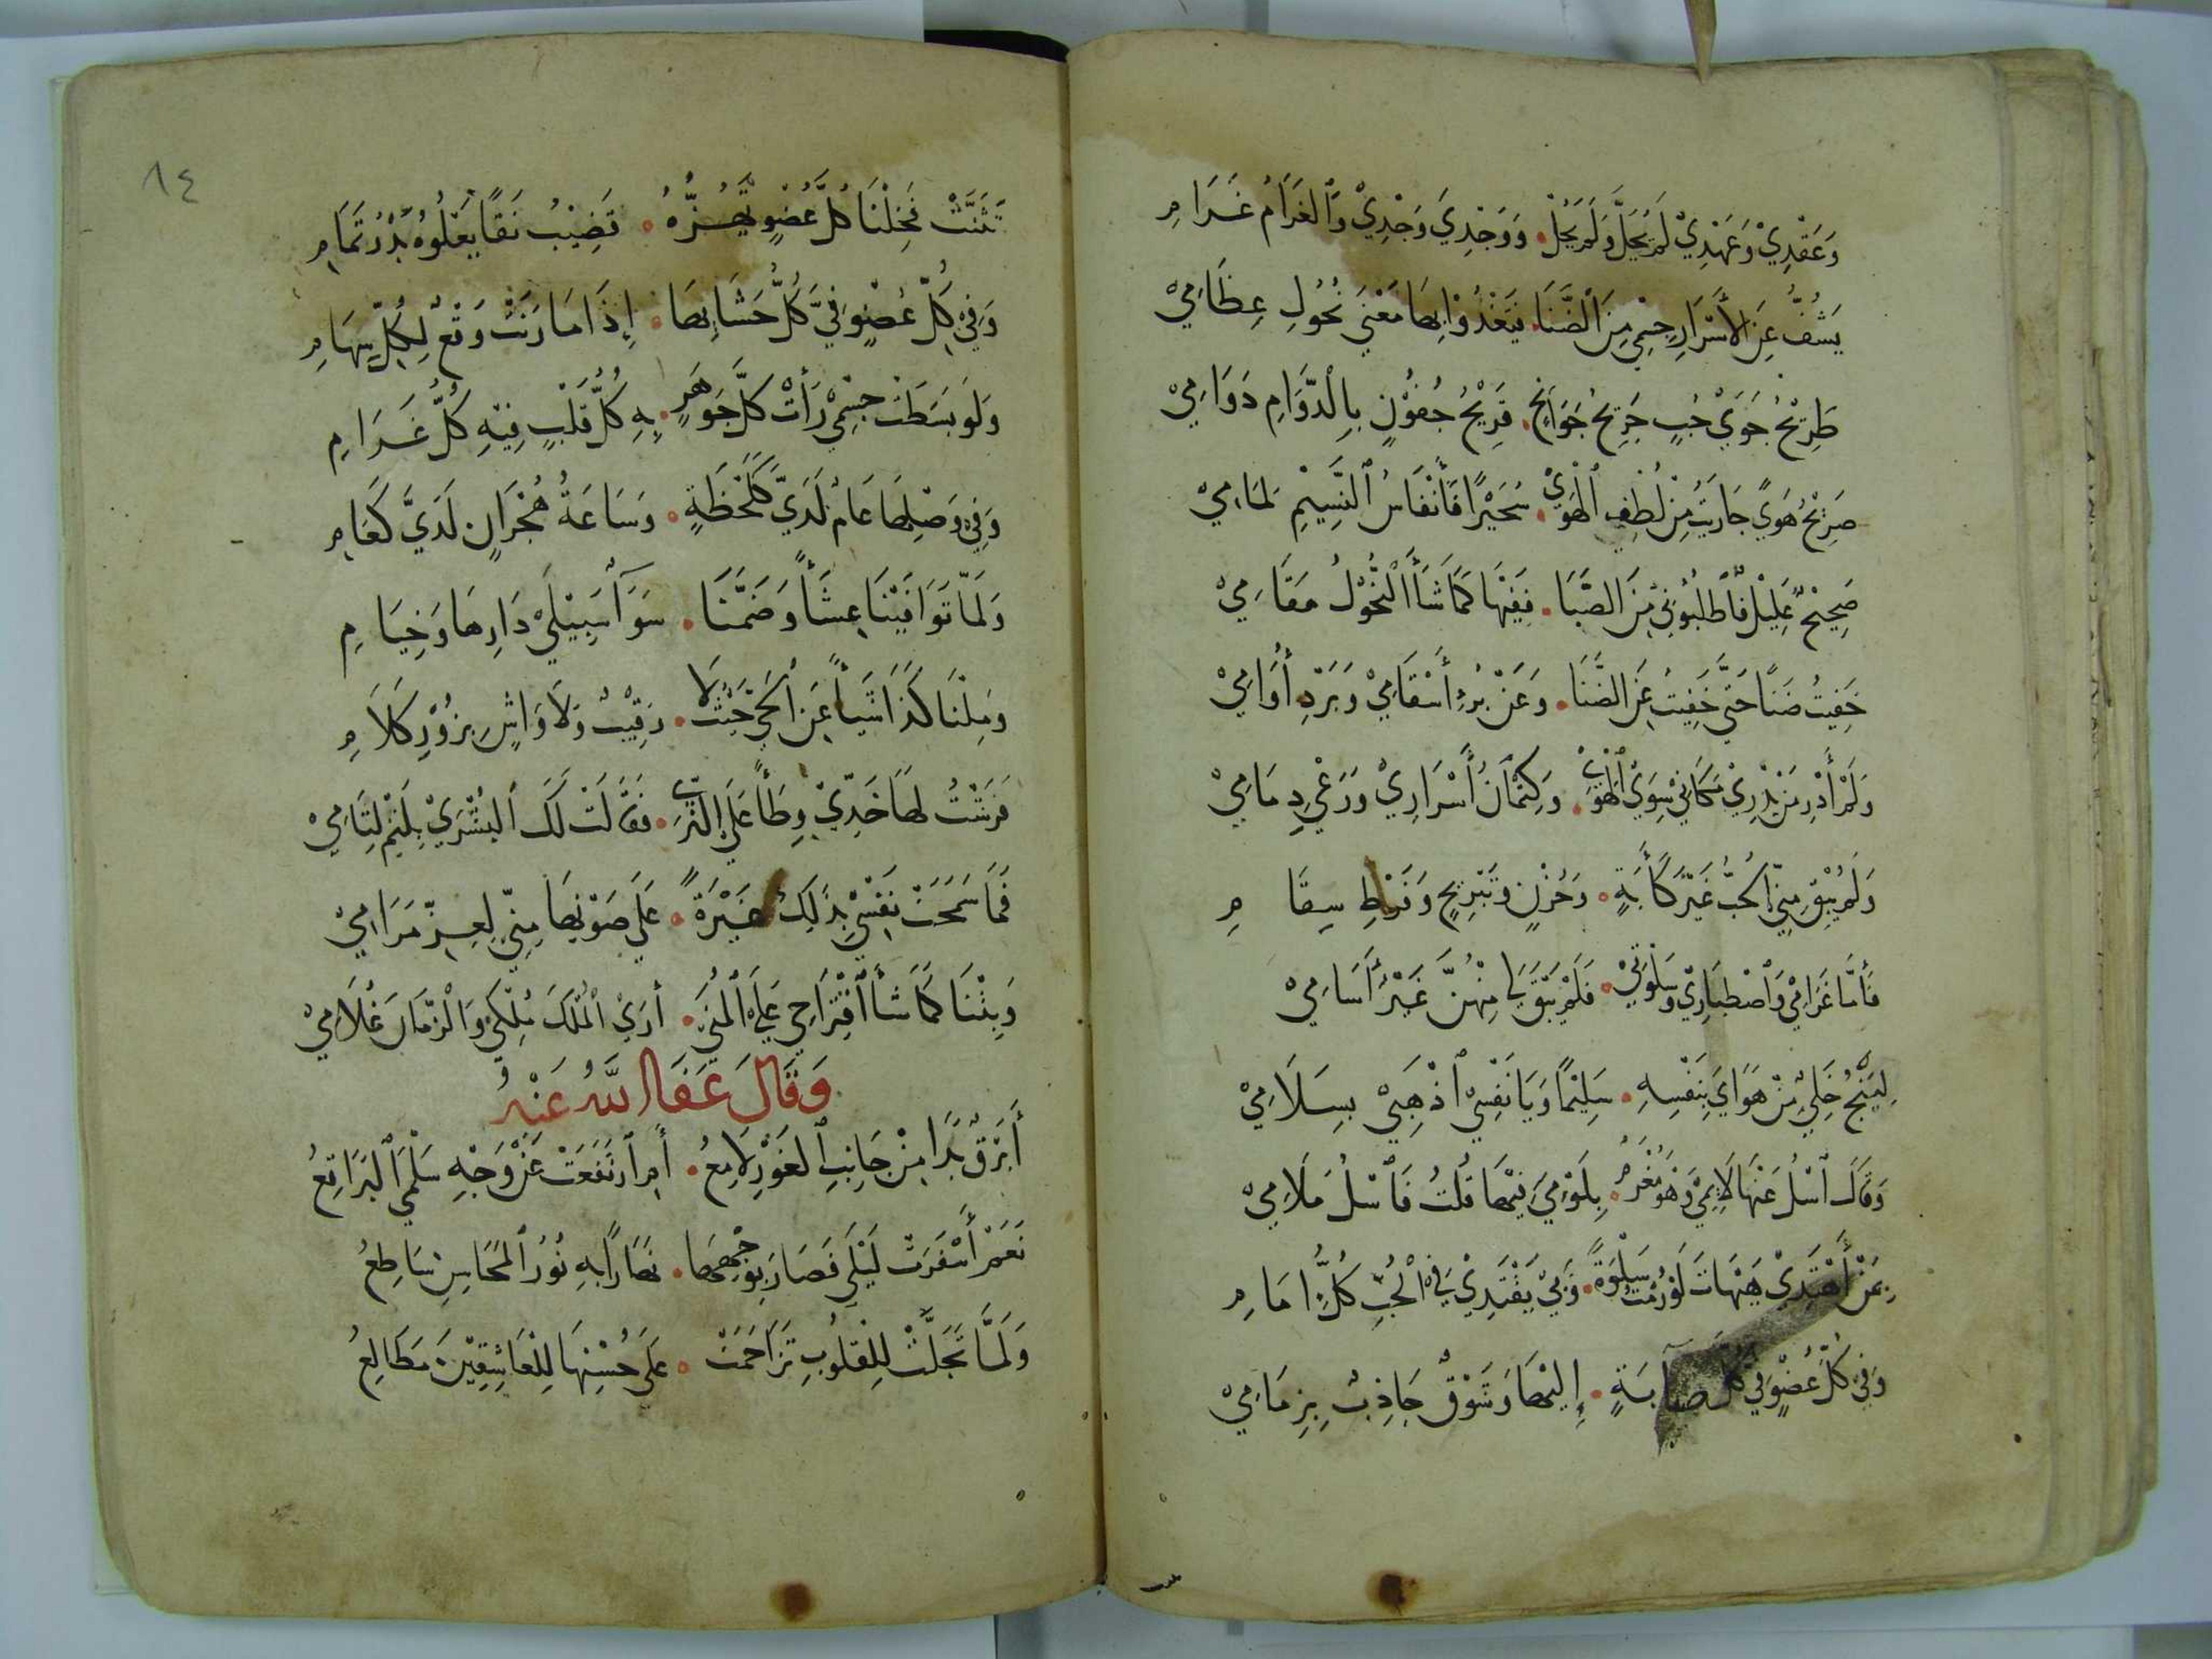 وَعَقْدِيْ وَعَهْدِيْ لَمْ يُحَلَّ وَلَمْ يَحُلْ ۰ وَوَجْدِيَ وَجْدِيْ وَٱلغَرَامُ غَرَامِ
يَشُفُّ عَنِ الأَسْرَارِ جِسْمِيْ مِنَ ٱلضَّنَا ۰ فَيَغْدُوْ بِهَا مَعْنَى نُحُولِ عِظَامِيْ
طَرِيْحُ جَوَيْ حُبٍ جَرِيحُ جَوَانِحٍ ۰ قَرِيْحُ جُفُوْنٍ بِالْدَّوَامِ دَوَامِيْ
صَرِيْحُ هَوًي جَارَيْتُ مِنْ لُطْفِي ٱلْهَوَيْ ۰ سُحَيْرًا فَأَنْفَاسُ ٱلنَّسِيْمِ لمَامِيْ
صَحِيْحٌ عَلِيْلٌ فَٱطْلُبُوْنِيْ مِنَ الصَّبَا ۰ فَفِيْهَا كَمَا شَأَ ٱلْنُّحُوْلُ مَقَامِيْ
خَفِيْتُ ضَنًا حَتَّى خَفِيْتُ عَنِ الضَّنَا ۰ وَعَنْ بُرْءِ أَسْقَامِيْ وَبَرْدِ أُوَامِيْ
وَلَمْ أَدْرِ مَنْ يَدْرِيْ مَكَانِيْ سِوَيْ ٱلْهَوَيْ ۰ وَكِتْمَانُ أَسْرَارِيْ وَرَعْيِ دِمَامِيْ
وَلَمْ يُبْقِ مِنِّيْ ٱلحُبُّ غَيْرَ كَأَبَةٍ ۰ وَحُزْنٍ وَتَبْرِيْحٍ وَفَرْطِ سِقَامِ
فَأَمَّا غَرَامِيْ وَٱصْطِبَارِيْ وَسَلْوَتِيْ ۰ فَلَمْ يَبْقَ لِيْ مِنْهُنَّ غَيْرُ أَسَامِيْ
لِيَنْجُ خَلِيٌّ مِنْ هَوَايَ بِنَفْسِهِ ۰ سَلِيْمًا وَيَا نَفْسِيْ ٱذْهَبِيْ بِسَلَامِيْ
وَقَالَ ٱسْلُ عَنْهَا لَايِمِيْ وَهْوَ مُغْرَمٌ ۰ بِلَوْمِيَ فِيْهَا قُلْتُ فَٱسْلُ مَلَامِيْ
بِمَنْ أَهْتَدِيْ هَيْهَاتَ لَوْ رُمْتُ سَلْوَةً ۰ وَبِيْ يَقْتَدِيْ فِيْ ٱلْحُبِّ كُلُّ إِمَامِ
وَفِيْ كُلِّ عُضْوٍ فِيَّ كُلُّ صَبَابَةٍ ۰ إِلَيْهَا وَشَوْقٌ جَاذِبٌ بِزِمَامِيْ
١٤
تَثَنَّتْ فَخِلْنَا كُلَّ عُضْوٍ تَهُزُّهُ ۰ قَضِيْبُ نَقًا يَعْلُوْهُ بَدْرُ تَمَامِ
وَفِيْ كُلِّ عُضْوٍ فِيَّ كُلُّ حَشَا بِهَا ۰ إِذَا مَا رَنَتْ وَقْعٌ لِكُلِّ سِهَامِ
وَلَوْ بَسَطَتْ جِسْمِيْ رَأَتْ كُلَّ جَوْهَرٍ ۰ بِهِ كُلُّ قَلْبٍ فِيْهِ كُلُّ غَرَامِ
وَفِيْ وَصْلِهَا عَامٌ لَدَيَّ كَلَحْظَةٍ ۰ وَسَاعَةُ هُجْرَانٍ لَدَيَّ كَعَامِ
وَلَمَّا تَوَافَيْنَا عِشَأً وَضَمَّنَا ۰ سَوَآ سَبِيْلَيْ دَارِهَا وَخِيَامِ
وَمِلْنَا كَذَا شَيأً عَنِ ٱلحَيِّ حَيْثُ لَا ۰ رَقِيْبٌ وَلَا وَاشٍ بِزُوْرِ كَلَامِ
فَرَشْتُ لَهَا خَدِّيْ وِطَأً عَلَى الثَّرَيْ ۰ فَقَالَتْ لَكَ ٱلبُشْرَيْ بِلَثْمِ لِثَامِيْ
فَمَا سَمَحَتْ نَفْسِيْ بِذَلِكَ غَيْرَةً ۰ عَلَى صَوْنِهَا مِنِّيْ لِعِزِّ مَرَامِيْ
وَبِتْنَا كَمَا شَأَ ٱقْتِرَاحِيْ عَلَى ٱلمُنَى ۰ أَرَيْ ٱلْمُلْكَ مُلْكِيْ وَالْزَّمَانَ غُلَامِيْ
وَقَالَ عَفَا اللَّهُ عَنْهُ
أَبَرْقٌ بَدَا مِنْ جَانِبِ ٱلغَوْرِ لَامِعُ ۰ أَمِ ٱرْتَفَعَتْ عَنْ وَجْهِ سَلْمَيْ ٱلبَرَاقِعُ
نَعَمْ أَسْفَرَتْ لَيْلَى فَصَارَ بِوَجْهِهَا ۰ نَهَارًا بِهِ نُوْرُ ٱلمَحَاسِنِ سَاطِعُ
وَلَمَّا تَجَلَّتْ لِلْقُلُوْبِ تَزَاحَمَتْ ۰ عَلَى حُسْنِهَا لِلْعَاشِقِيْنَ مَطَالِعُ